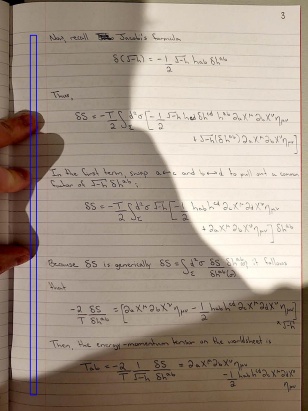 3
Now, recall Jacobi's formula
δ(√-h) = -1/2 √-h hab δh^ab
Thus,
δS = -T/2 ∫_Σ d²σ [-1/2 √-h hcd δh^cd h^ab ∂aX^μ ∂bX^ν ημν
+ √-h (δh^ab) ∂aX^μ ∂bX^ν ημν]
In the first term, swap a↔c and b↔d to pull out a common
factor of √-h δh^ab:
δS = -T/2 ∫_Σ d²σ √-h [-1/2 hab h^cd ∂cX^μ ∂dX^ν ημν
+ ∂aX^μ ∂bX^ν ημν] δh^ab
Because δS is generically δS = ∫_Σ d²σ δS/δh^ab δh^ab, it follows
that
-2/T δS/δh^ab = [∂aX^μ ∂bX^ν ημν - 1/2 hab h^cd ∂cX^μ ∂dX^ν ημν]
√-h
Then, the energy-momentum tensor on the worldsheet is
Tab = -2/T 1/√-h δS/δh^ab = ∂aX^μ ∂bX^ν ημν
-1/2 hab h^cd ∂cX^μ ∂dX^ν
ημν